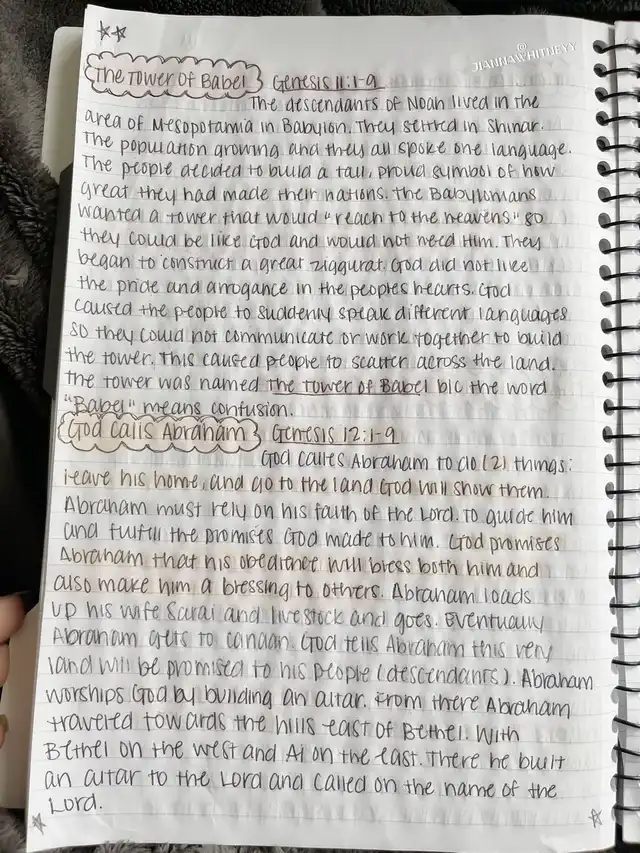 @
JIANNAWHITNEYY
The Tower Of Babel Genesis 11:1-9
The descendants of Noah lived in the
area of Mesopotamia in Babylon. They settled in Shinar.
The population growing and they all spoke one language.
The people decided to build a tall, proud symbol of how
great they had made their nations. The Babylonians
wanted a tower that would "reach to the heavens" so
they could be like God and would not need Him. They
began to construct a great ziggurat. God did not like
the pride and arrogance in the peoples hearts. God
caused the people to suddenly speak different languages
so they could not communicate or work together to build
the tower. This caused people to scatter across the land.
The tower was named The Tower of Babel b/c the word
"Babel" means confusion.
God Calls Abraham Genesis 12:1-9
God calles Abraham to do (2) things:
leave his home, and go to the land God will show them.
Abraham must rely on his faith of the Lord. To guide him
and fulfill the promises God made to him. God promises
Abraham that his obedience will bless both him and
also make him a blessing to others. Abraham loads
up his wife Sarai and livestock and goes. Eventually
Abraham gets to Canaan. God tells Abraham this very
land will be promised to his people (descendants). Abraham
worships God by building an altar. From there Abraham
travered towards the hills east of Bethel. With
Bethel on the west and Ai on the east. There he built
an altar to the Lord and called on the name of the
Lord.